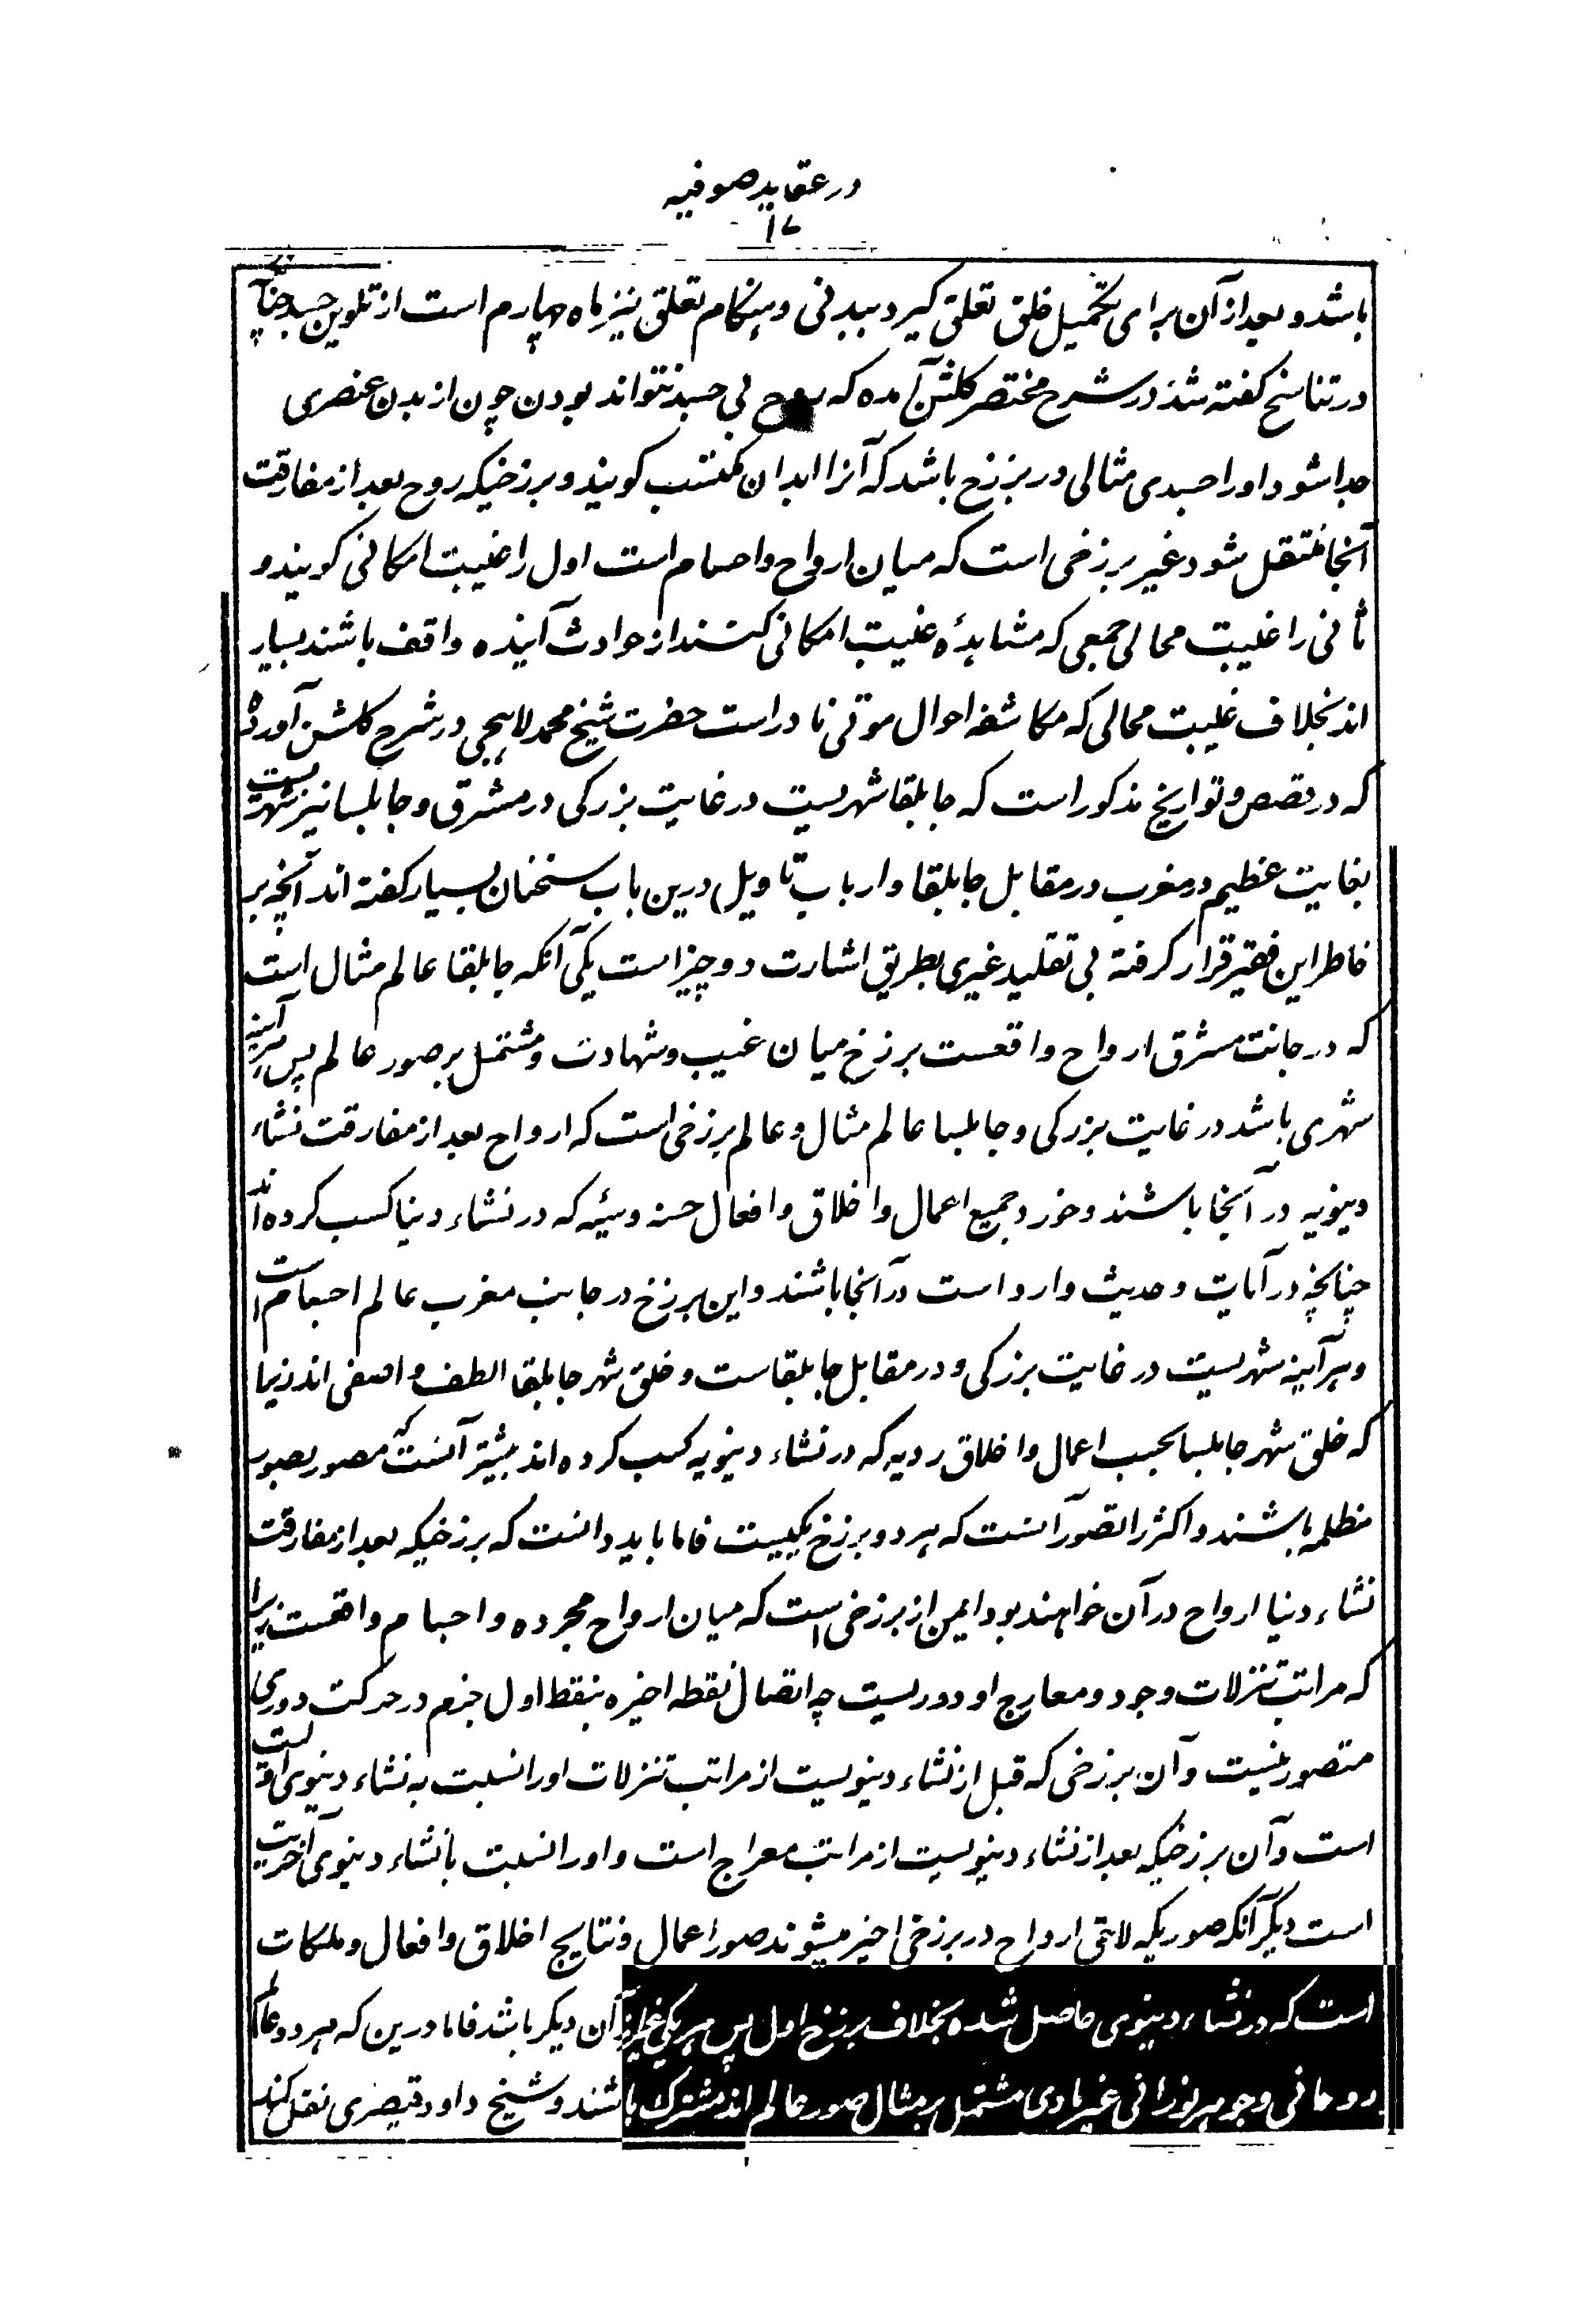 در عقاید صوفیه
۱۷
باشد و بعد از آن برای تکمیل خلق تعلق کیرد ببدنی و هنکام تعلق نیز ماه چهارم است از تکوین جسد چنانچه
در تناسخ کفته شد در شرح مختصر کلشن آمده که روح بی جسد نتواند بودن چون از بدن عنصری
جدا شود او را جسدی مثالی در برزخ باشد که آنرا ابدان مکتسب کویند و برزخیکه روح بعد از مفارقت
آنجا منتقل شود غیر برزخی است که میان ارواح و اجسام است اول را غیبت امکانی کویند و
ثانی را غیبت محالی جمعی که مشاهدهٔ غیبت امکانی کنند از حوادث آینده واقف باشند بسیار
اند بخلاف غیبت محالی که مکاشفه احوال موتی نادر است حضرت شیخ محمد لاهیجی در شرح کلشن آورده
که در قصص و تواریخ مذکور است که جابلقا شهریست در غایت بزرکی در مشرق و جابلسا نیز شهریست
بغایت عظیم در مغرب در مقابل جابلقا و ارباب تاویل درین باب سخنان بسیار کفته اند آنچه بر
خاطر این فقیر قرار کرفته بی تقلید غیری بطریق اشارت دو چیز است یکی آنکه جابلقا عالم مثال است
که در جانب مشرق ارواح واقعست برزخ میان غیب و شهادت و مشتمل بر صور عالم پس هرآینه
شهری باشد در غایت بزرکی و جابلسا عالم مثال و عالم برزخی است که ارواح بعد از مفارقت نشاء
دینویه در آنجا باشند و خورد جمیع اعمال و اخلاق و افعال حسنه و سیّئه که در نشاء دنیا کسب کرده اند
چنانچه در آیات و حدیث وارد است در آنجا باشند و این برزخ در جانب مغرب عالم اجسام است
و هرآینه شهریست در غایت بزرکی و در مقابل جابلقاست و خلق شهر جابلقا الطف و اصفی اند زیرا
که خلق شهر جابلسا بحسب اعمال و اخلاق ردیه که در نشاء دینویه کسب کرده اند بیشتر آنست که مصور بصور
مظلمه باشند و اکثر را تصور آنست که هر دو برزخ یکیست فاما باید دانست که برزخیکه بعد از مفارقت
نشاء دنیا ارواح در آن خواهند بود ایمن از برزخی است که میان ارواح مجرده و اجسام واقعست زیرا
که مراتب تنزلات وجود و معارج او دوریست چه اتصال نقطه اخیره بنقط اول جزم در حرکت دوری
متصور نیست و آن برزخی که قبل از نشاء دینویست از مراتب تنزلات او را نسبت به نشاء دینوی اولیت
است و آن برزخیکه بعد از نشاء دینویست از مراتب معراج است و او را نسبت بانشاء دینوی آخریت
است دیکر آنکه صوریکه لاحق ارواح در برزخی اخیر میشوند صور اعمال و نتایج اخلاق و افعال و ملکات
است که در نشاء دینوی حاصل شده بخلاف برزخ اول پس هر یکی غیر از آن دیکر باشد فاما درین که هر دو عالم
روحانی و جوهر نورانی غیر مادی مشتمل بر مثال صور عالم اند مشترک باشند و شیخ داود قیصری نقل کند